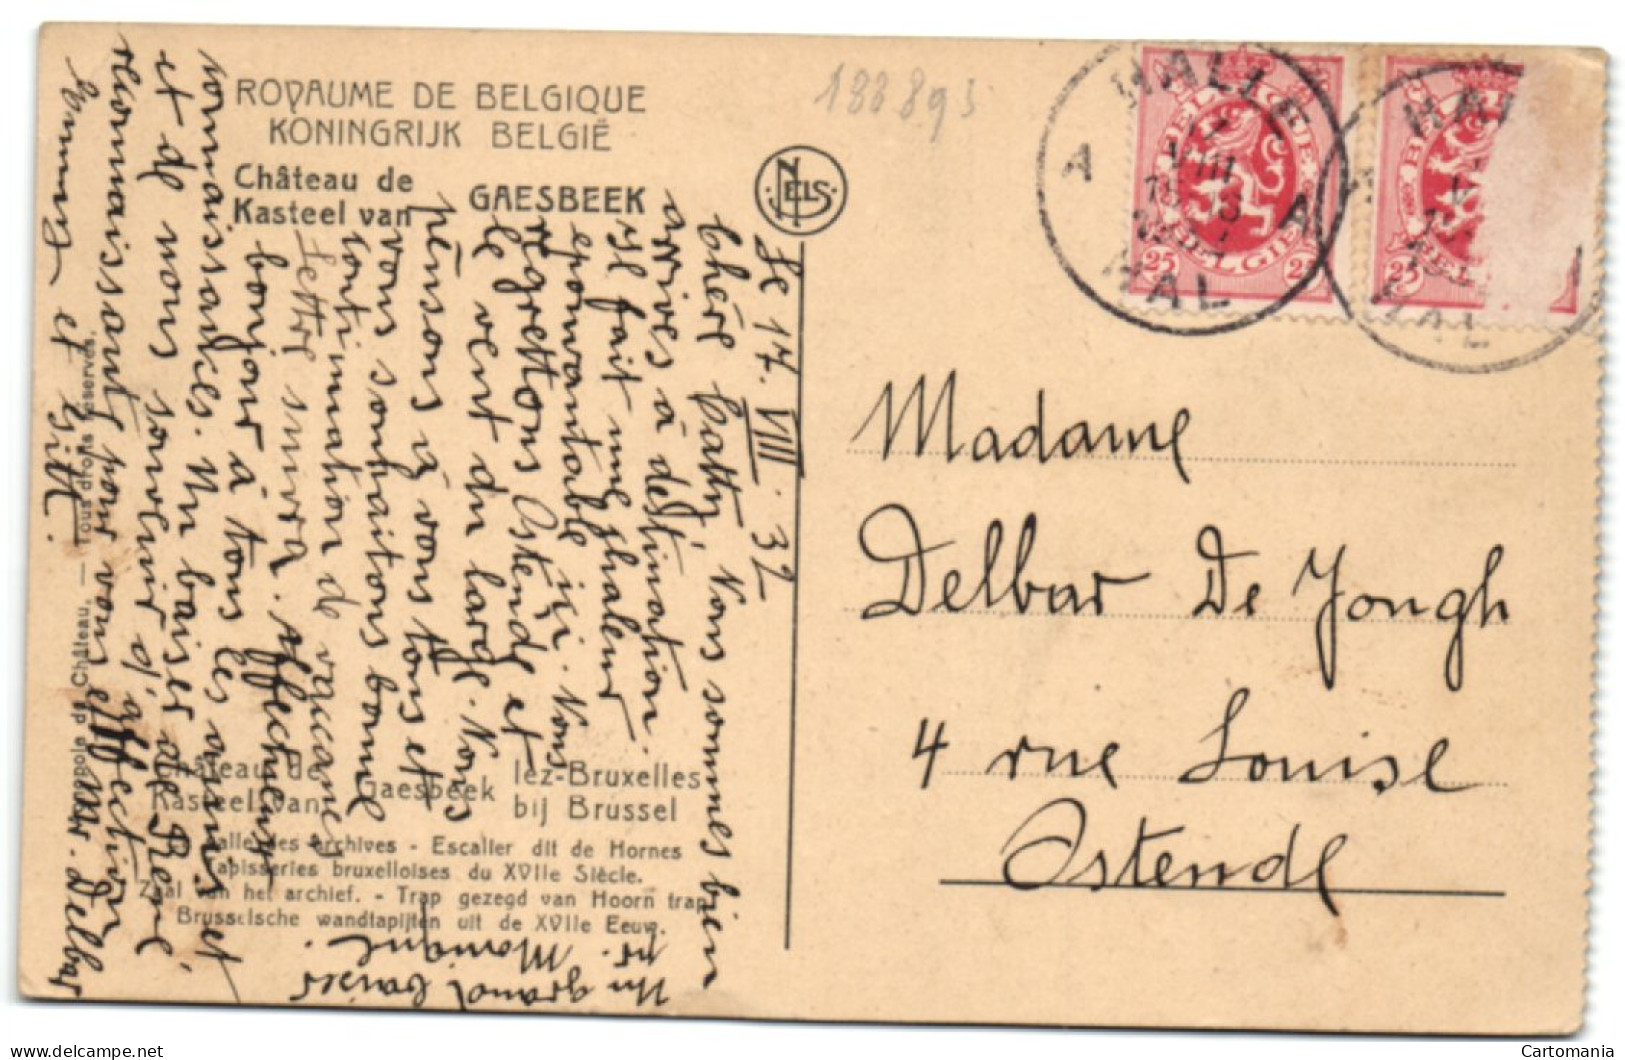 ROYAUME DE BELGIQUE
KONINGRIJK BELGIË
Château de
Kasteel van
GAESBEEK
NELS
188895
HALLE
VIII
A A
HAL
BELGIQUE
BELGIE
25 25
HAL
25
HAL
Le 17. VIII. 32
Chère Catty, Nous sommes bien
arrivés à destination.
Il fait une chaleur
épouvantable ici. Nous
regrettons Ostende et
le vent du large. Nous
pensons à vous tous et
vous souhaitons bonne
continuation de vacances
Lettre suivra. Affectueux
bonjour à tous les amis et
connaissances. Un baiser de René
et de nous souvenir d'affection
reconnaissante pour vous et Mr. Delbar
Un grand baiser
pr. Monique.
Château de
Kasteel van
Gaesbeek
lez-Bruxelles
bij Brussel
Salle des archives - Escalier dit de Hornes
Tapisseries bruxelloises du XVIIe Siècle.
Zaal van het archief. - Trap gezegd van Hoorn trap
Brusselsche wandtapijten uit de XVIIe Eeuw.
Monopole du Château. — Tous droits réservés.
Madame
Delbar De Jongh
4 rue Louise
Ostende
Cartomania